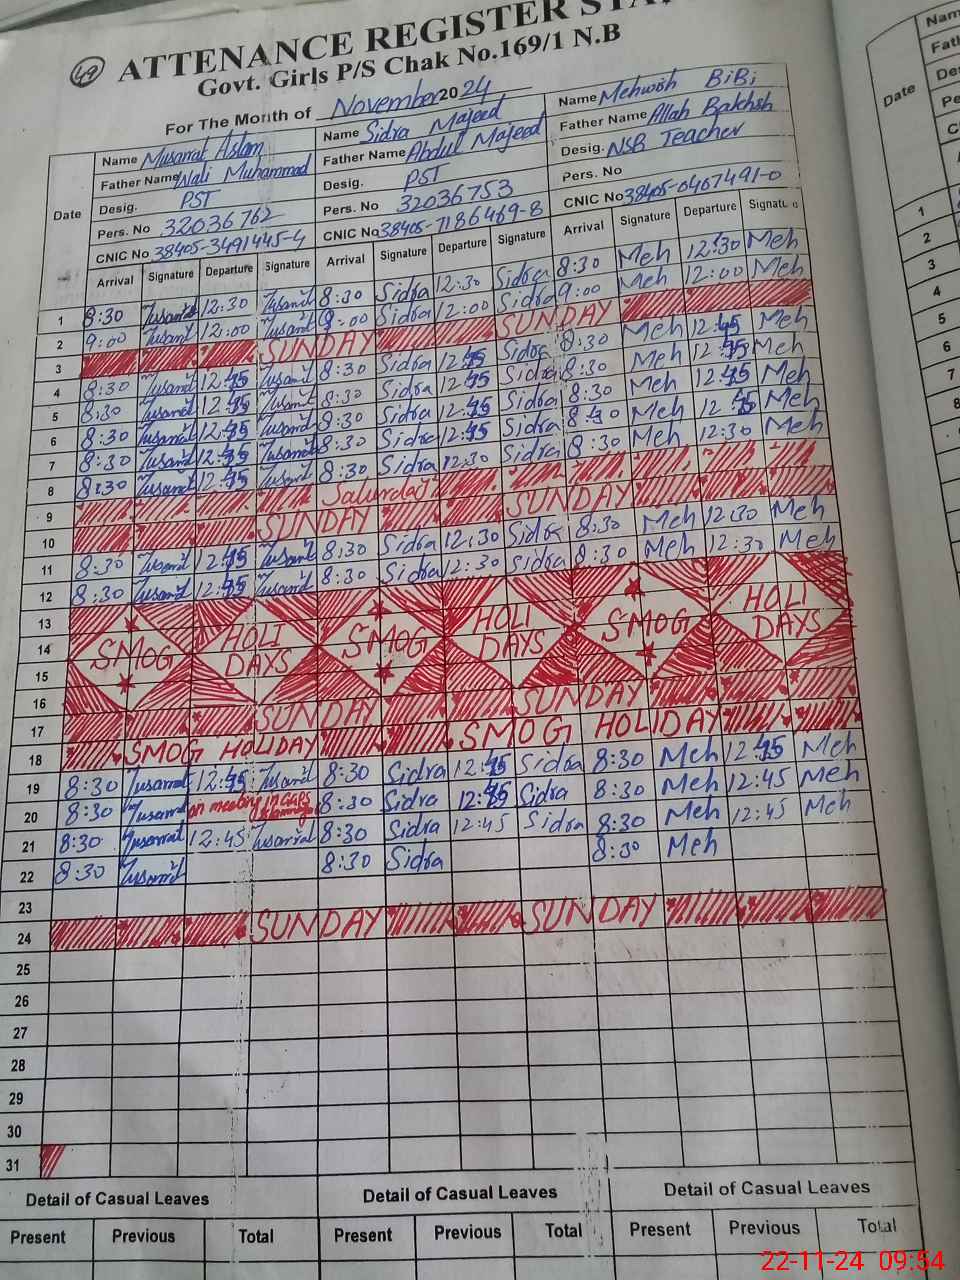 49 ATTENANCE REGISTER
Govt. Girls P/S Chak No.169/1 N.B
For The Month of November 2024
Name Musarrat Aslam Name Sidra Majeed Name Mehwish BiBi
Father Name Wali Muhammad Father Name Abdul Majeed Father Name Allah Bakhsh
Desig. PST Desig. PST Desig. NSB Teacher
Pers. No 32036762 Pers. No 32036753 Pers. No
CNIC No 38405-3491445-4 CNIC No 38405-7186469-8 CNIC No 38405-0467491-0
Date Arrival Signature Departure Signature Arrival Signature Departure Signature Arrival Signature Departure Signature
1 8:30 12:30 8:30 Sidra 12:30 Sidra 8:30 Meh 12:30 Meh
2 9:00 12:00 9:00 Sidra 12:00 Sidra 9:00 Meh 12:00 Meh
3 SUNDAY SUNDAY
4 8:30 12:45 8:30 Sidra 12:45 Sidra 8:30 Meh 12:45 Meh
5 8:30 12:45 8:30 Sidra 12:45 Sidra 8:30 Meh 12:45 Meh
6 8:30 12:45 8:30 Sidra 12:45 Sidra 8:30 Meh 12:45 Meh
7 8:30 12:45 8:30 Sidra 12:45 Sidra 8:30 Meh 12:45 Meh
8 8:30 12:45 8:30 Sidra 12:30 Sidra 8:30 Meh 12:30 Meh
9 Saturday
10 SUNDAY SUNDAY
11 8:30 12:45 8:30 Sidra 12:30 Sidra 8:30 Meh 12:30 Meh
12 8:30 12:45 8:30 Sidra 12:30 Sidra 8:30 Meh 12:30 Meh
13 HOLI HOLI HOLI
14 SMOG SMOG SMOG
15 DAYS DAYS DAYS
16
17 SUNDAY SUNDAY
18 SMOG HOLIDAY SMOG HOLIDAY
19 8:30 Musarrat 12:45 8:30 Sidra 12:45 Sidra 8:30 Meh 12:45 Meh
20 8:30 on meeting in 8:30 Sidra 12:45 Sidra 8:30 Meh 12:45 Meh
21 8:30 Musarrat 12:45 Musarrat 8:30 Sidra 12:45 Sidra 8:30 Meh 12:45 Meh
22 8:30 8:30 Sidra 8:30 Meh
23
24 SUNDAY SUNDAY
25
26
27
28
29
30
31
Detail of Casual Leaves Detail of Casual Leaves Detail of Casual Leaves
Present Previous Total Present Previous Total Present Previous Total
Date
1
2
3
4
5
6
7
8
22-11-24 09:54